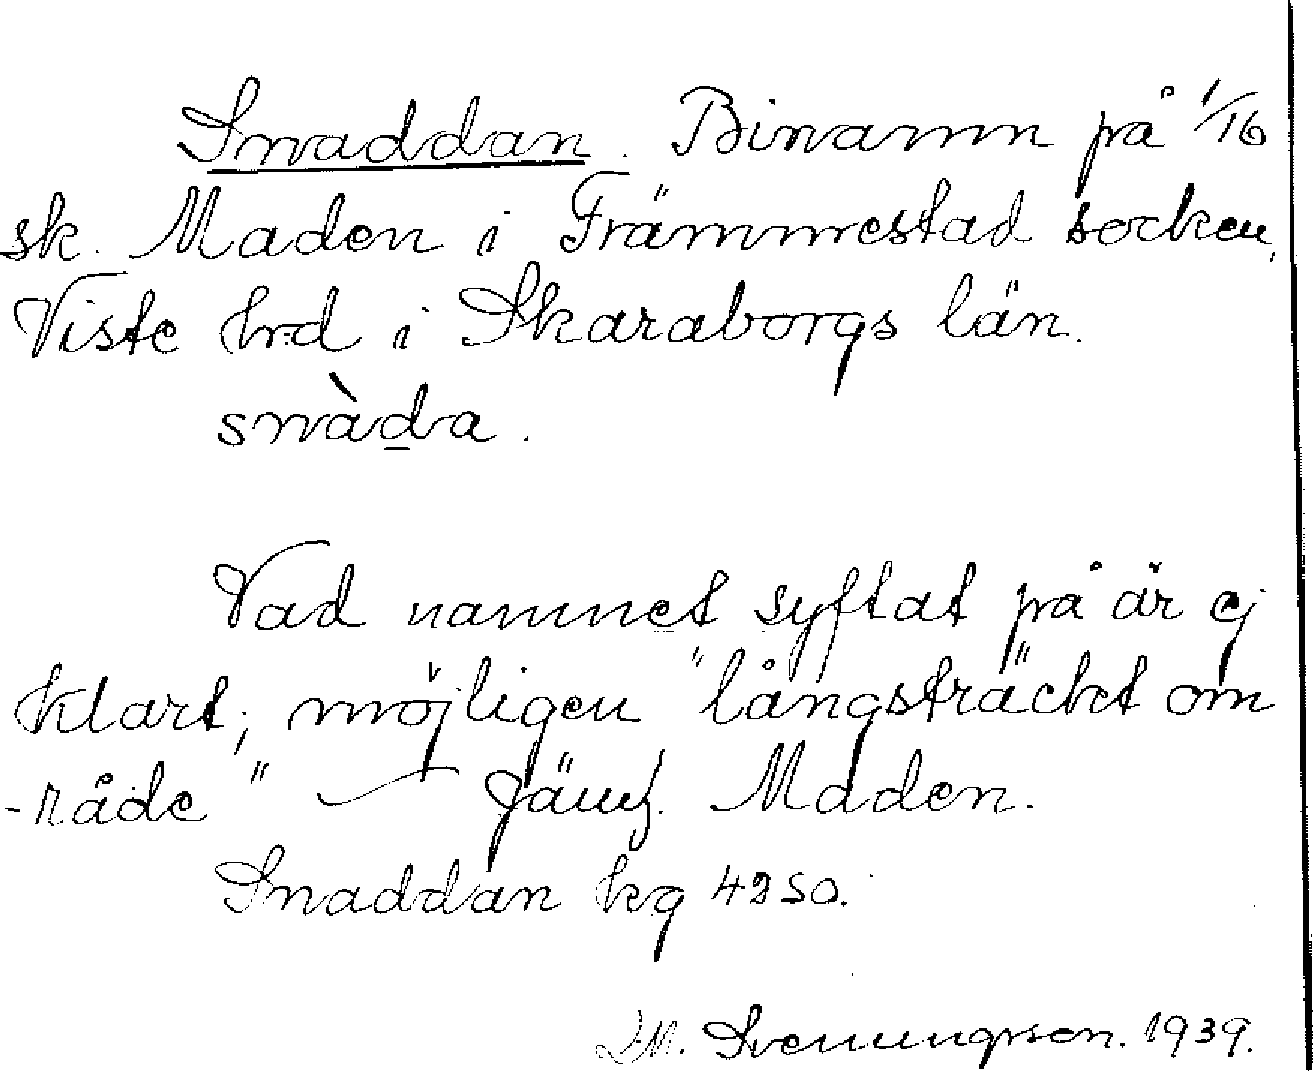 Snaddan. Binamn på 1/16
sk. Maden i Främmestad socken,
Viste hrd i Skaraborgs län.
snàda.
Vad namnet syftat på är ej
klart; möjligen "långsträckt om
-råde" — Jämf. Maden.
Snaddan kg 4250.
M. Svenungsson. 1939.